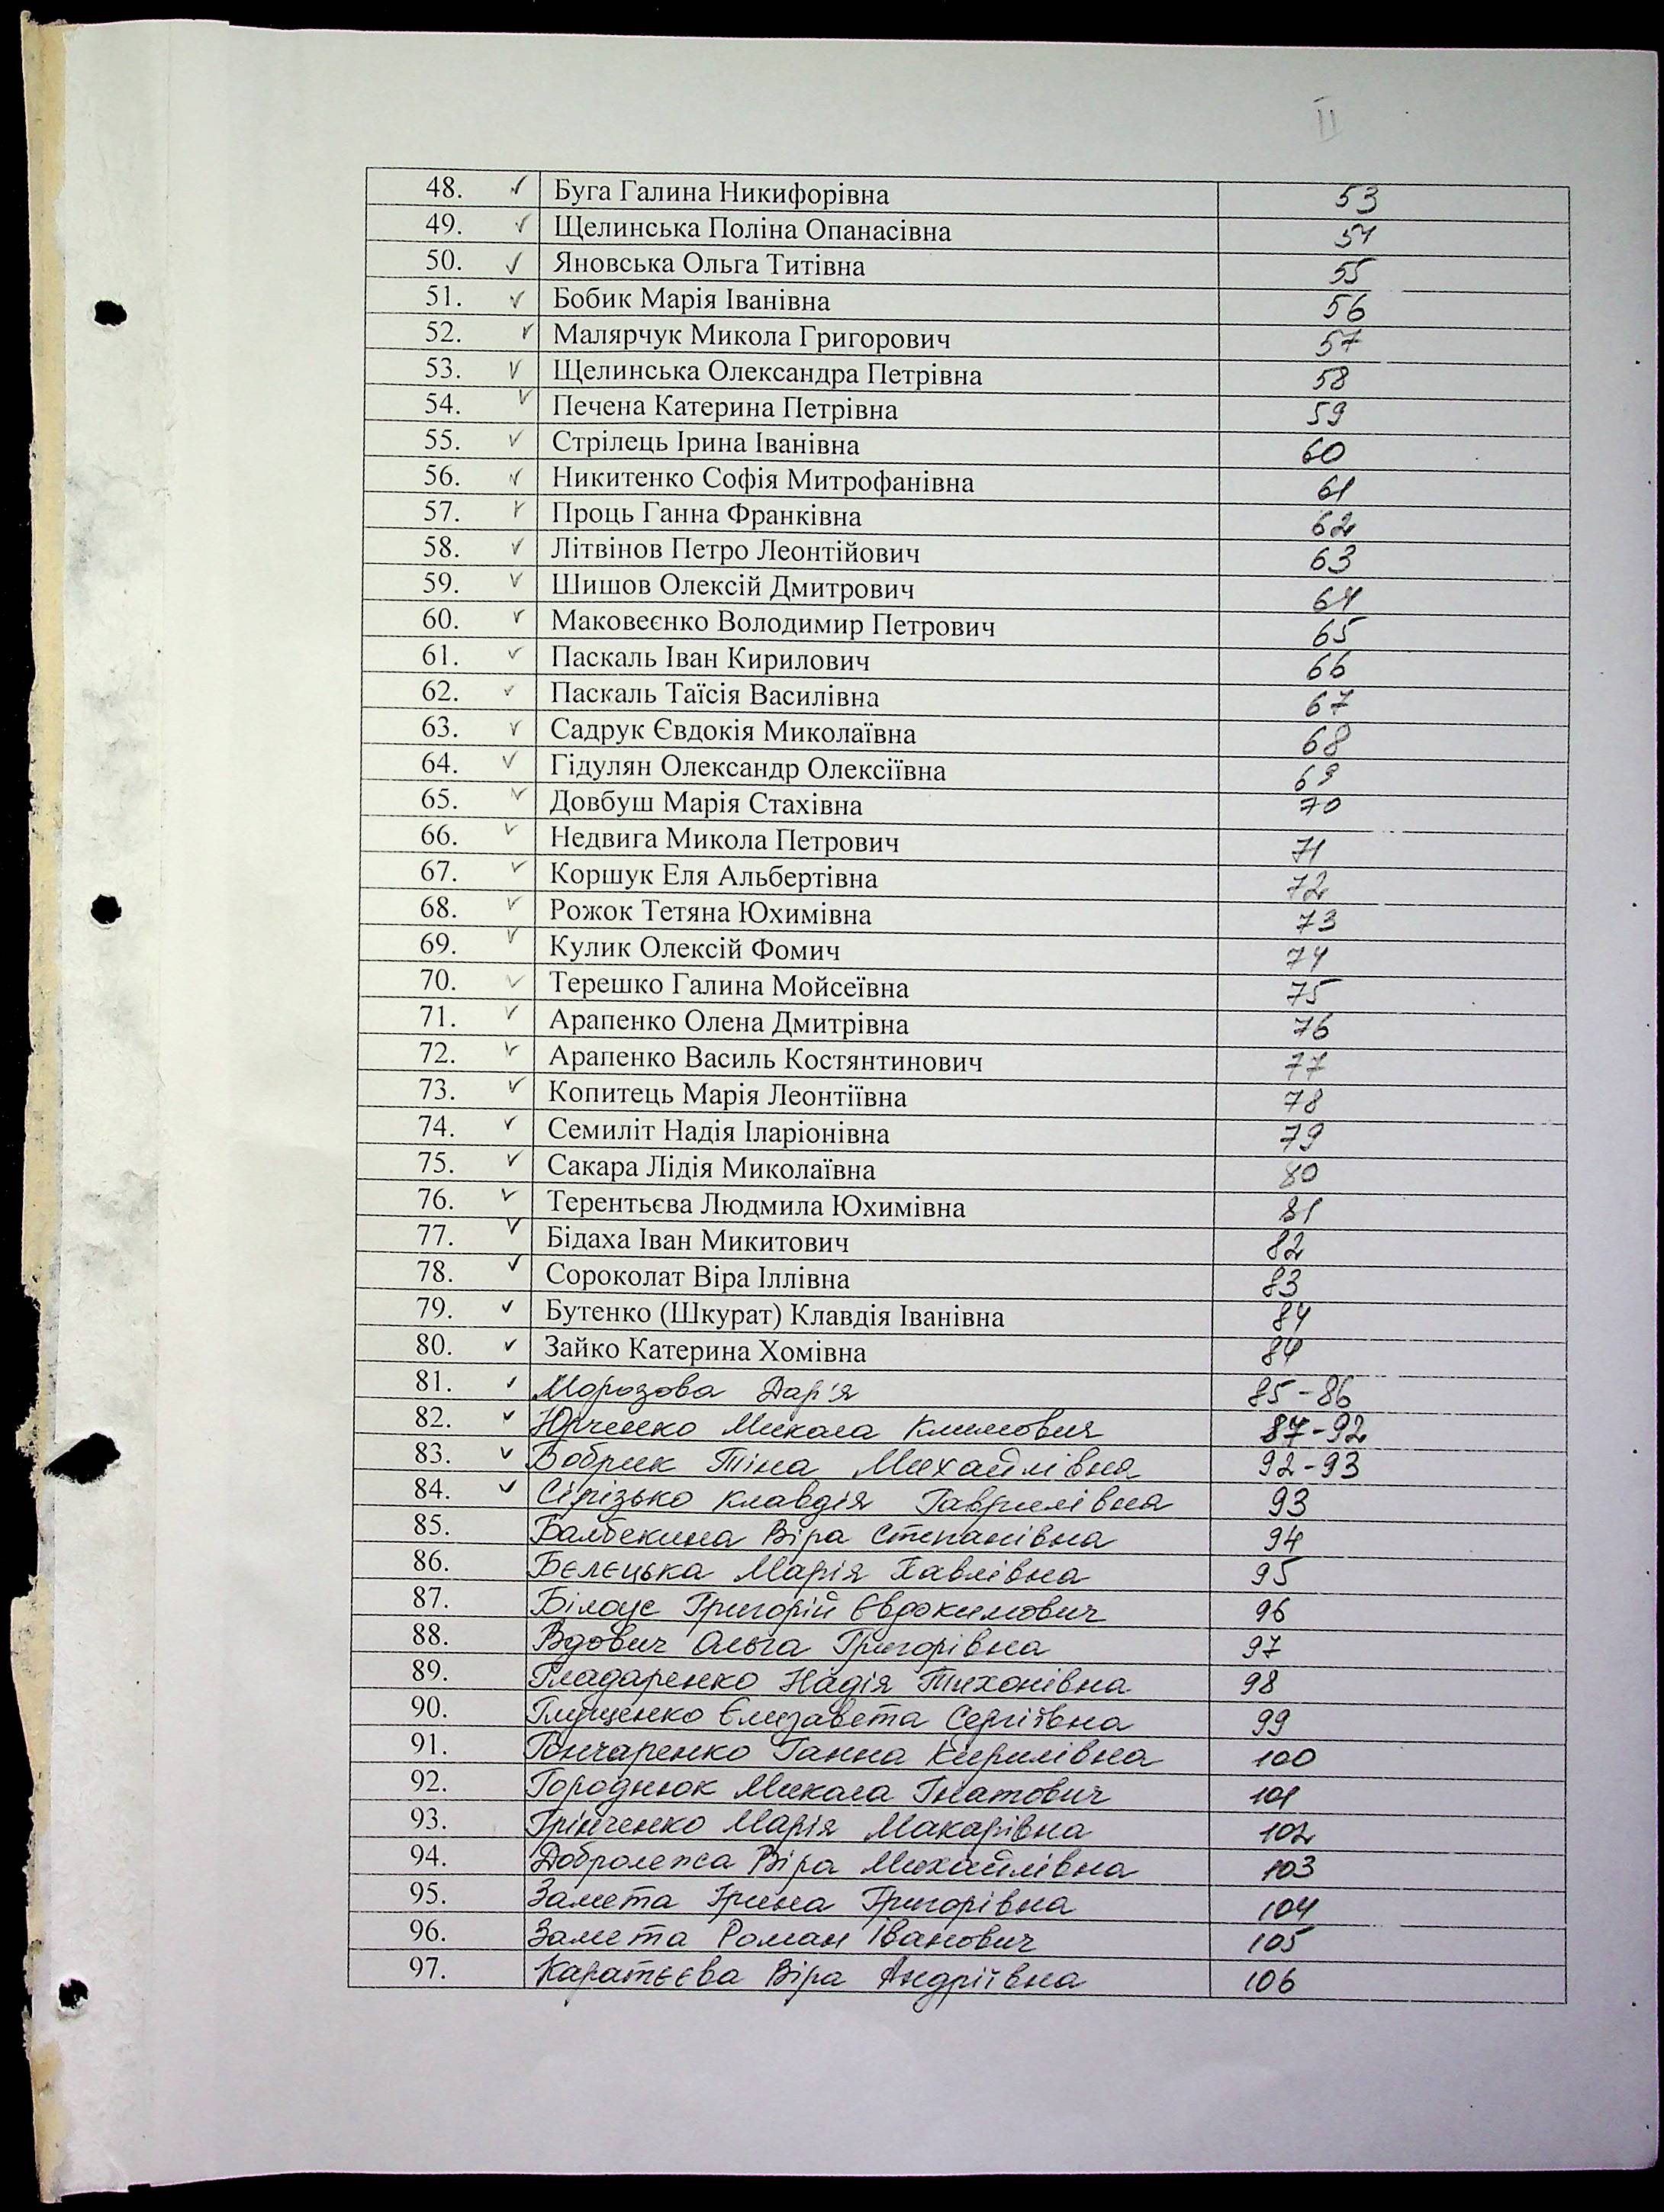 II
48. ✓ Буга Галина Никифорівна 53
49. ✓ Щелинська Поліна Опанасівна 54
50. ✓ Яновська Ольга Титівна 55
51. ✓ Бобик Марія Іванівна 56
52. ✓ Малярчук Микола Григорович 57
53. ✓ Щелинська Олександра Петрівна 58
54. ✓ Печена Катерина Петрівна 59
55. ✓ Стрілець Ірина Іванівна 60
56. ✓ Никитенко Софія Митрофанівна 61
57. ✓ Проць Ганна Франківна 62
58. ✓ Літвінов Петро Леонтійович 63
59. ✓ Шишов Олексій Дмитрович 64
60. ✓ Маковеєнко Володимир Петрович 65
61. ✓ Паскаль Іван Кирилович 66
62. ✓ Паскаль Таїсія Василівна 67
63. ✓ Садрук Євдокія Миколаївна 68
64. ✓ Гідулян Олександр Олексіївна 69
65. ✓ Довбуш Марія Стахівна 70
66. ✓ Недвига Микола Петрович 71
67. ✓ Коршук Еля Альбертівна 72
68. ✓ Рожок Тетяна Юхимівна 73
69. ✓ Кулик Олексій Фомич 74
70. ✓ Терешко Галина Мойсеївна 75
71. ✓ Арапенко Олена Дмитрівна 76
72. ✓ Арапенко Василь Костянтинович 77
73. ✓ Копитець Марія Леонтіївна 78
74. ✓ Семиліт Надія Іларіонівна 79
75. ✓ Сакара Лідія Миколаївна 80
76. ✓ Терентьєва Людмила Юхимівна 81
77. ✓ Бідаха Іван Микитович 82
78. ✓ Сороколат Віра Іллівна 83
79. ✓ Бутенко (Шкурат) Клавдія Іванівна 84
80. ✓ Зайко Катерина Хомівна 84
81. ✓ Морозова Дар'я 85-86
82. ✓ Юрченко Микола Климович 87-92
83. ✓ Бобрик Тіна Михайлівна 92-93
84. ✓ Сірізько Клавдія Гаврилівна 93
85. Балбекина Віра Степанівна 94
86. Бєлєцька Марія Павлівна 95
87. Білоус Григорій Євдокимович 96
88. Вдович Ольга Григорівна 97
89. Гладаренко Надія Тихонівна 98
90. Глущенко Єлизавета Сергіївна 99
91. Гончаренко Ганна Кирилівна 100
92. Городнюк Микола Гнатович 101
93. Грінченко Марія Макарівна 102
94. Добролежа Віра Михайлівна 103
95. Замета Ірина Григорівна 104
96. Замета Роман Іванович 105
97. Каратєєва Віра Андріївна 106